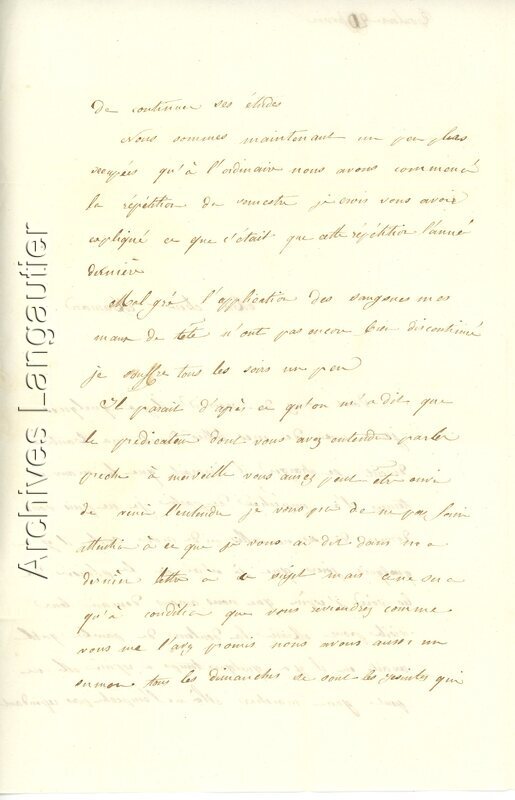 De continuer ses études
Nous sommes maintenant un peu plus
occupées qu'à l'ordinaire nous avons commencé
la répétition du semestre je crois vous avoir
expliqué ce que c'était que cette répétition l'anné
dernière
Malgré l'application des sangsues mes
maux de tête n'ont pas encore bien discontinué
je souffre tous les soirs un peu
Il parait d'après ce qu'on m'a dit que
le prédicateur dont vous avez entendu parler
preche à merveille vous aurez peut être envi
de venir l'entendre je vous prie de ne pas faire
attention à ce que je vous ai dit dans ma
dernière lettre à ce sujet mais ce ne sera
qu'à condition que vous reviendrez comme
vous me l'avez promis nous avons aussi un
sermon tous les dimanches se sont les jésuites qui
Archives Langautier